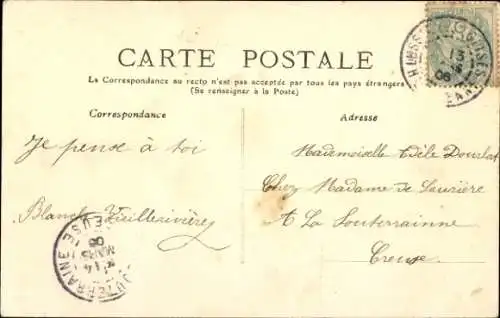 CARTE POSTALE
La Correspondance au recto n'est pas acceptée par tous les pays étrangers
(Se renseigner à la Poste)
Correspondance
Adresse
Je pense à toi
Blanche Vieillerivière
Mademoiselle Adèle
Chez Madame de Laurière
A La Souterrainne
Creuse
13
06
SOUTERRAINE
CREUSE
14
MARS
06